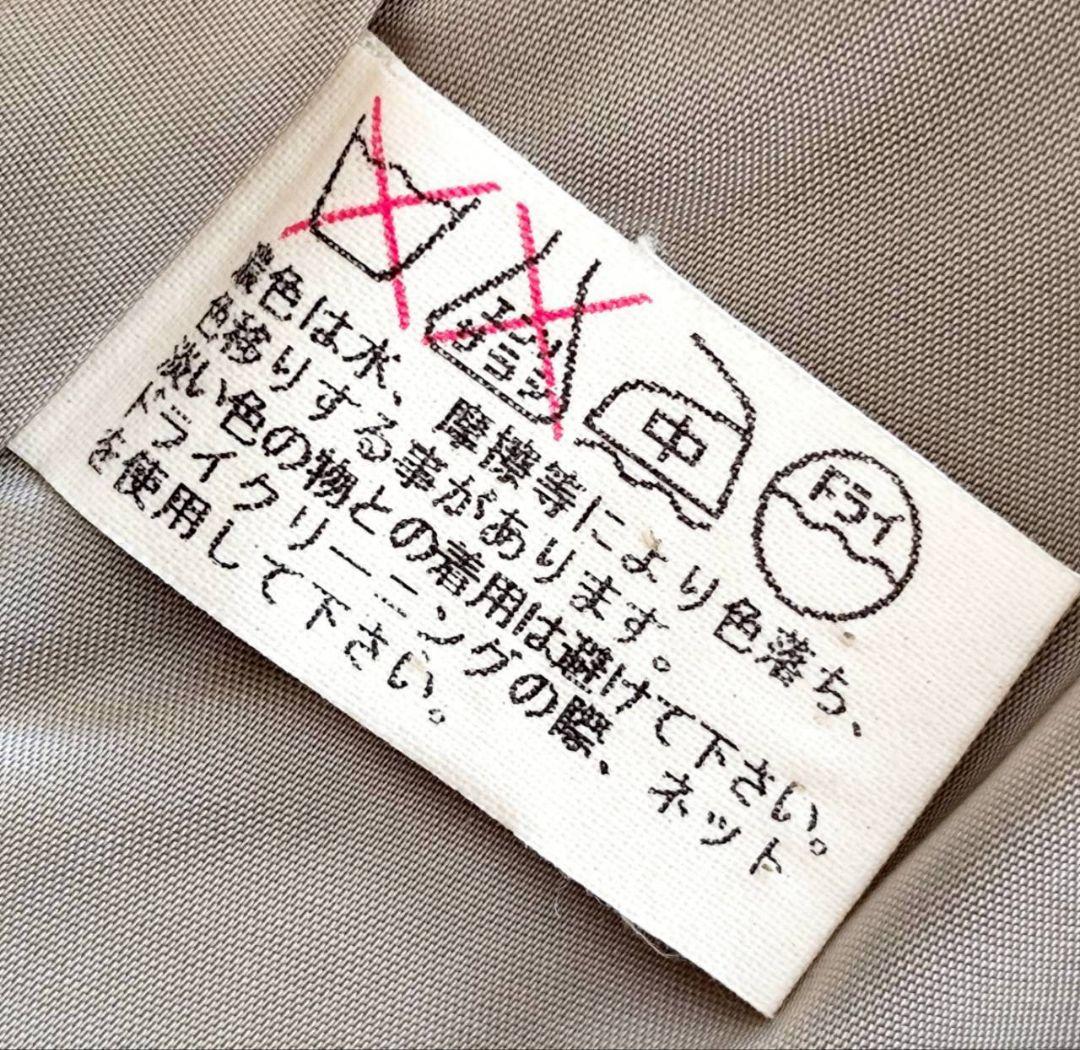 エンソ
サラシ
中
ドライ
濃色は水、摩擦等により色落ち、
色移りする事があります。
淡い色の物との着用は避けて下さい。
ドライクリーニングの際、ネット
を使用して下さい。